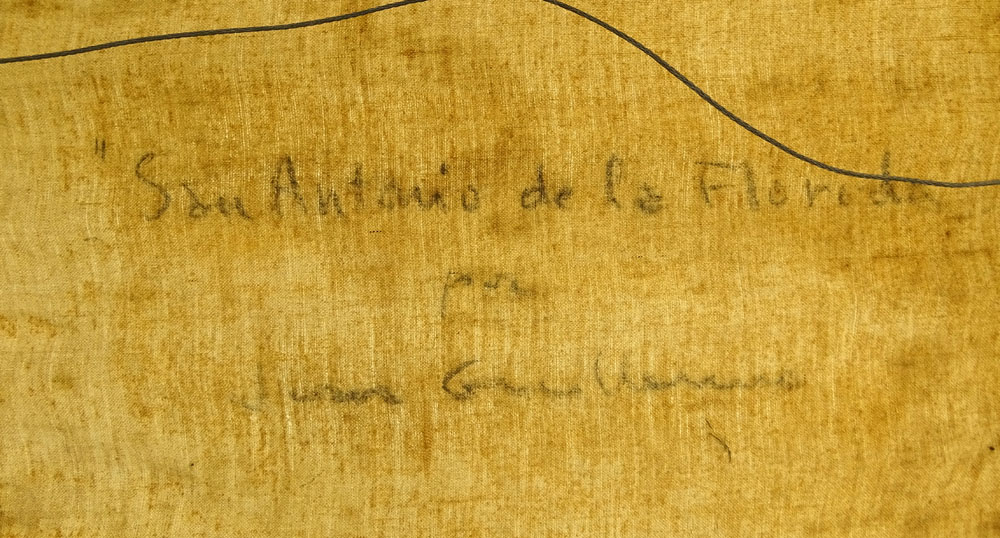 "San Antonio de la Florida
por
Juan Guillermo